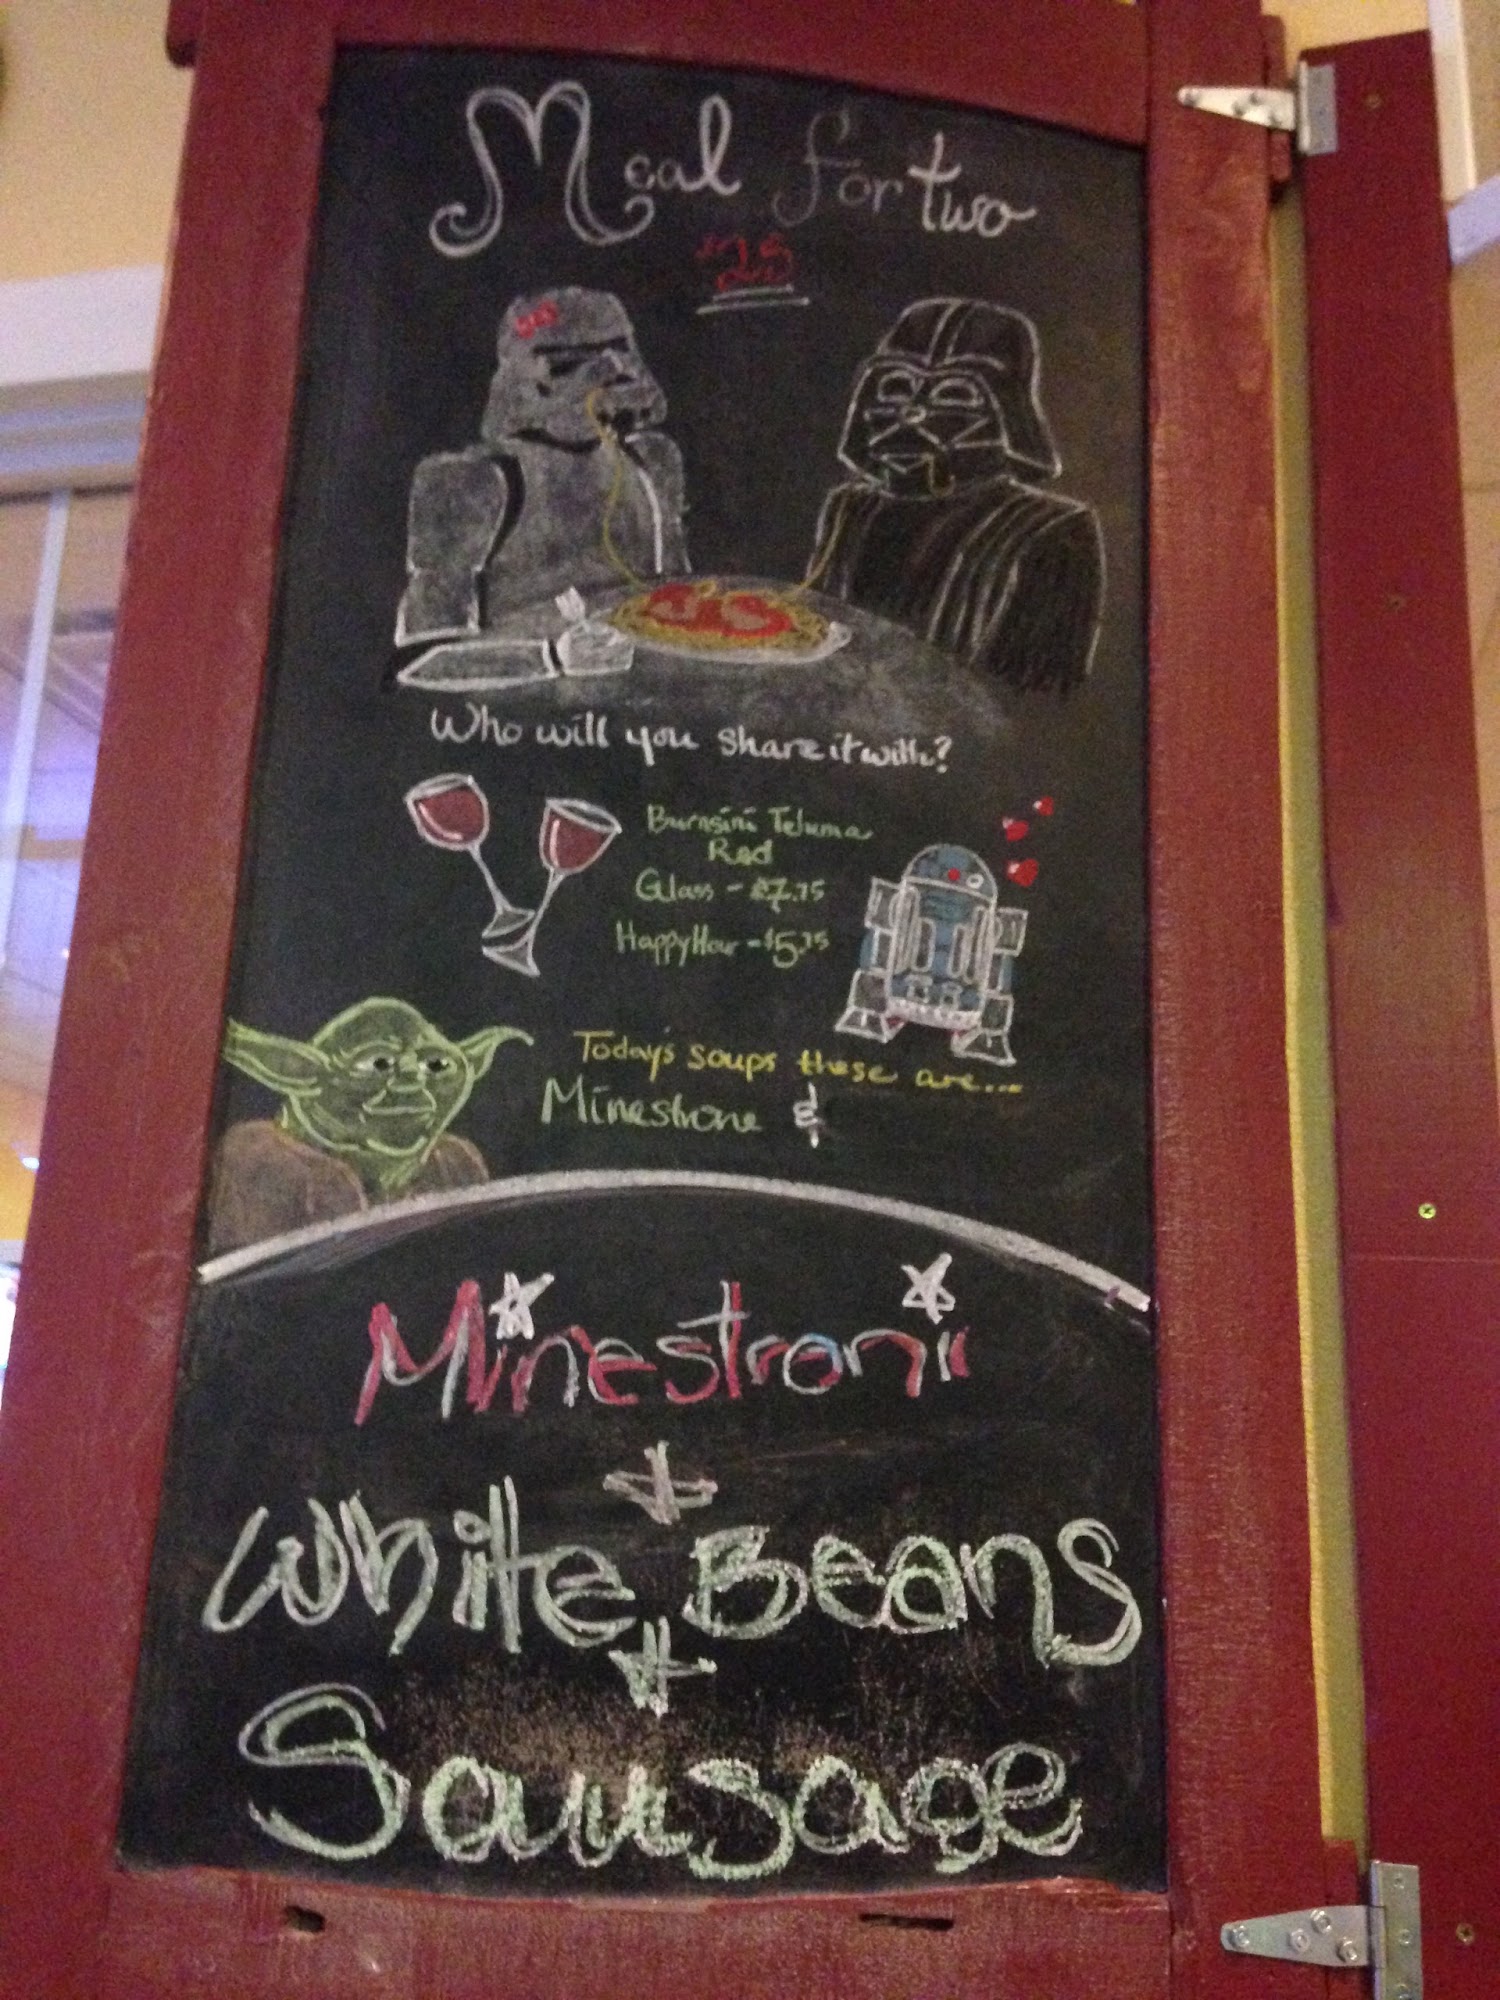 Meal for two
$25
Who will you share it with?
Bursini Teluma
Red
Glass - $7.75
Happy Hour - $5.75
Today's soups these are...
Minestrone &
Minestronii
+
White Beans
+
Sausage